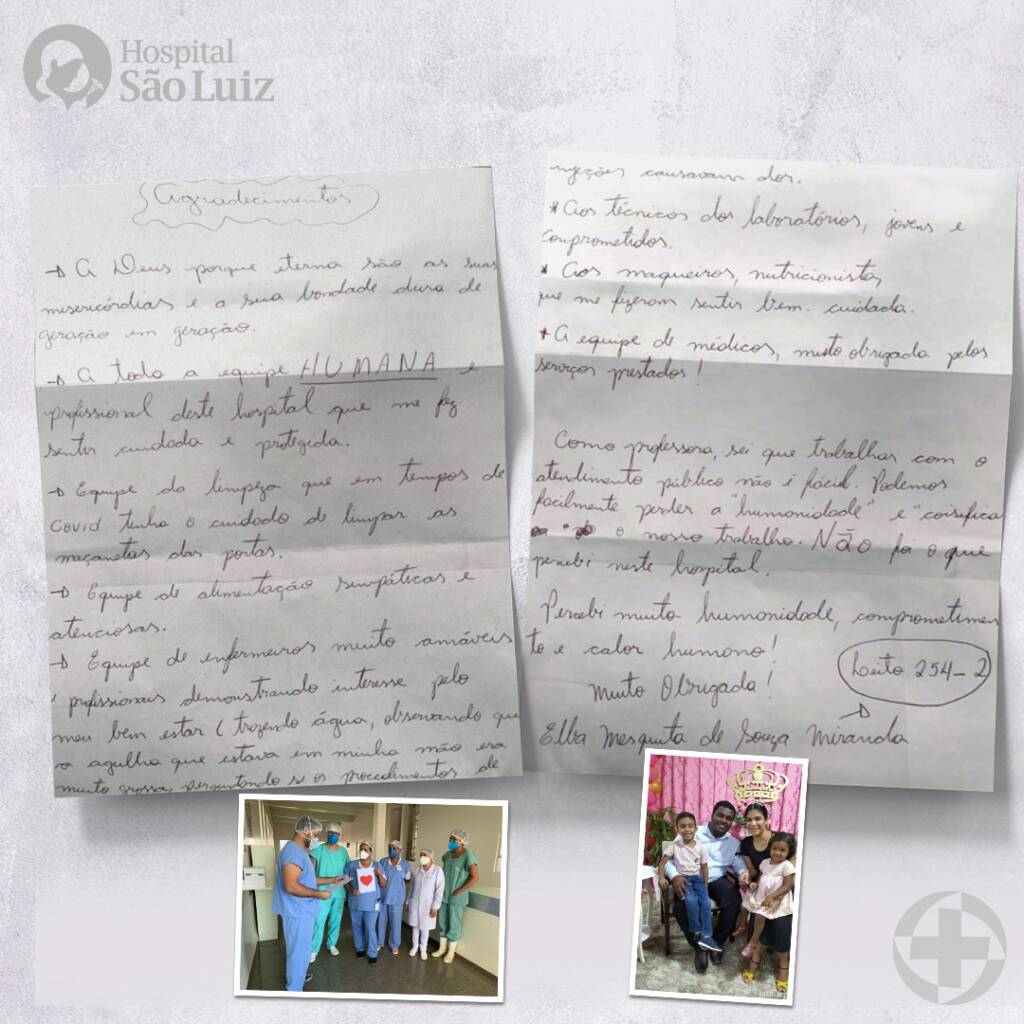 Hospital
São Luiz
Agradecimentos
→ A Deus porque eterna são as suas
misericórdias e a sua bondade dura de
geração em geração.
→ A toda a equipe HUMANA e
profissional deste hospital que me fez
sentir cuidada e protegida.
→ Equipe da limpeza que em tempos de
Covid tinha o cuidado de limpar as
maçanetas das portas.
→ Equipe de alimentação simpáticas e
atenciosas.
→ Equipe de enfermeiros muito amáveis
e profissionais demonstrando interesse pelo
meu bem estar (trazendo água, observando que
a agulha que estava em minha mão era
muito grossa, perguntando se os procedimentos de
injeções causavam dor.
* Aos técnicos dos laboratórios, jovens e
comprometidos.
* Aos maqueiros, nutricionistas,
que me fizeram sentir bem cuidada.
* A equipe de médicos, muito obrigada pelos
serviços prestados!
Como professora, sei que trabalhar com o
atendimento público não é fácil. Podemos
facilmente perder a "humanidade" e "coisifica
o nosso trabalho. NÃO foi o que
percebi neste hospital.
Percebi muita humanidade, comprometimen
to e calor humano!
Muito Obrigada!
Leito 254-2
Elba Mesquita de Souza Miranda